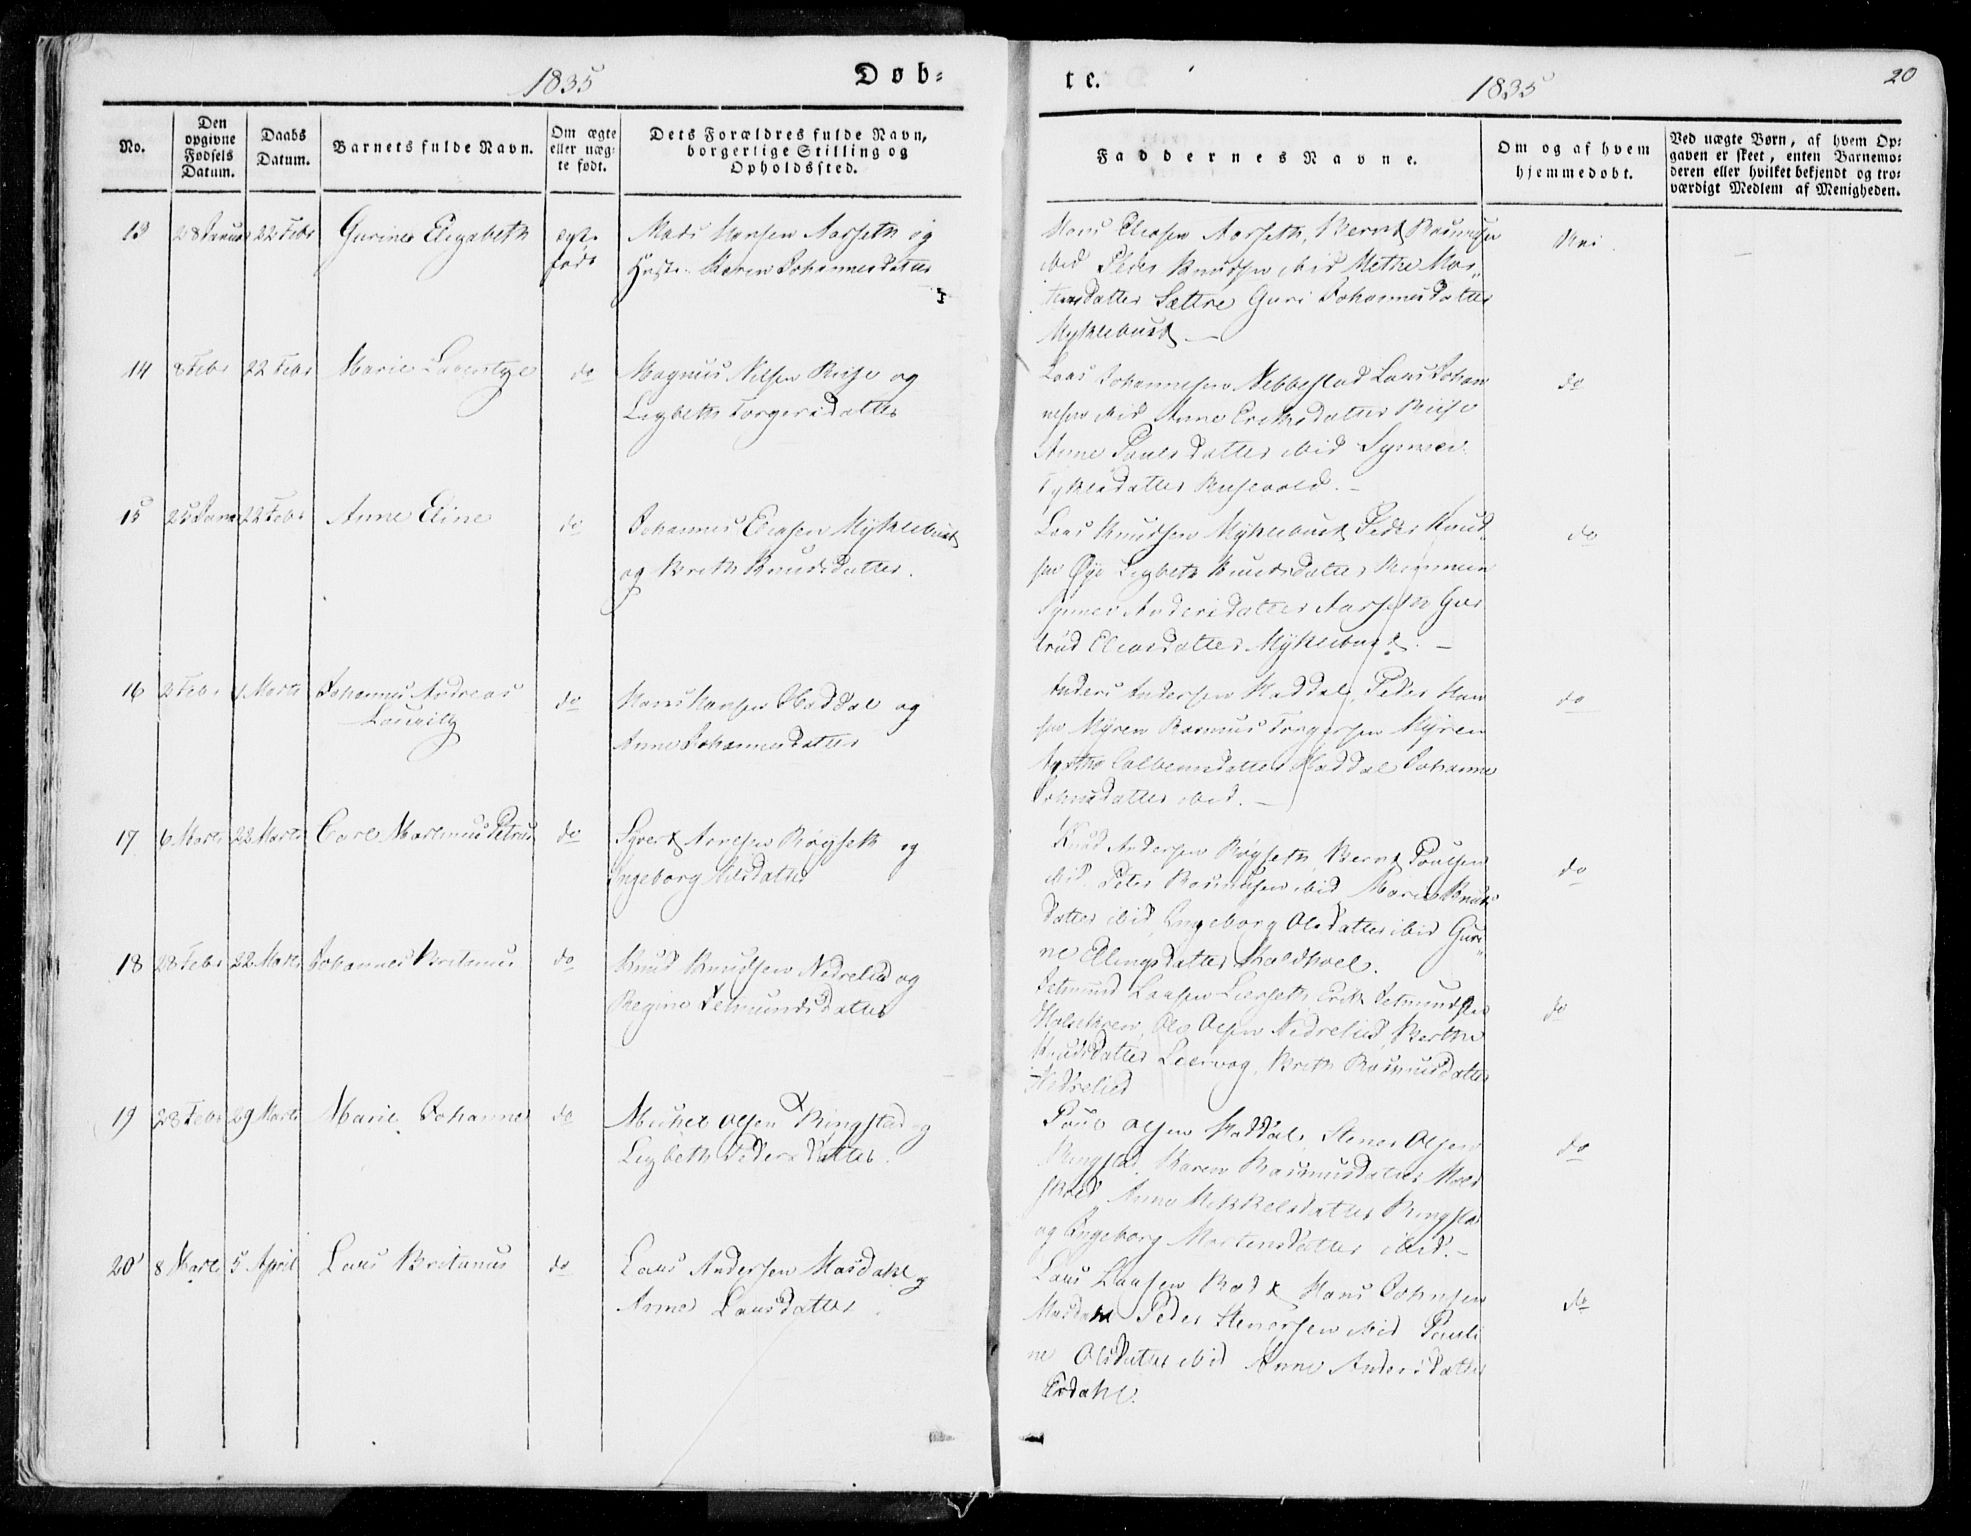 1835
Døb-
te.
1835
20
No.
Den
opgivne
Fødsels
Datum.
Daabs
Datum.
Barnets fulde Navn.
Om ægte
eller uæg-
te født.
Dets Forældres fulde Navn,
borgerlige Stilling og
Opholdssted.
Faddernes Navne.
Om og af hvem
hjemmedøbt.
Ved uægte Børn, af hvem Op-
gaven er skeet, enten Barnemo-
deren eller hvilket bekjendt og tro-
værdigt Medlem af Menigheden.
13
28 Januar
22 Febr
Gurine Elisabeth
ægte
født
Mads Hansen Aarseth og
Karen Johannesdatter
Hans Eliasen Aarseth, Bernt Rasmusen
ibid Peder Knudsen ibid Methe Mor-
tensdatter Sætre Guri Johannesdatter
Myklebust
Nei
14
8 Febr
22 Febr
Marie
do
Magnus Nilsen Riise og
Lisbeth Torgersdatter
Laas Johannesen Nebbestad Laas Johan
nesen ibid Anne Eriksdatter Riise
Anne Paulsdatter ibid Synnev
do
15
25 Januar
22 Febr
Anne Eline
do
Johannes Eliasen Myklebust
og Brith Knudsdatter.
Laas Knudsen Myklebust Peder Knud
sen Øye Lisbeth Knudsdatter
Synnev Andersdatter Aarseth Gur
trud Eliasdatter Myklebust.
do
16
2 Febr
1 Marts
Johannes Andreas
Lauritz
do
Hans Hansen Haddal og
Anne Johannesdatter
Anders Andersen Haddal, Peder Han
sen Myren Rasmus Torgersen Myren
Haddal Johanne
Johnsdatter ibid.
do
17
6 Marts
22 Marts
Carl Martinus Petrus
do
Syvert Røyseth og
Ingeborg Nilsdatter
Knud Andersen Røyseth, Bernt Paulsen
ibid Peter Rasmusen ibid Marie Knuds
datter ibid, Ingeborg Olsdatter ibid Guri-
ne Ellingsdatter
do
18
28 Febr
22 Marts
Johannes Britanus
do
Knud Knudsen Nedrelid og
Regine Jetmundsdatter
Jetmund Laasen Lierseth Erik Jetmundsen
Ole Olsen Nedrelid, Berthe
Knudsdatter Leervog, Brith Rasmusdatter
Nedrelid
do
19
28 Febr
29 Marts
Marie Johanne
do
Mickel Olsen Ringstad og
Lisbeth Pedersdatter.
Paul Olsen Haddal, Stener Olsen
Ringstad, Karen Rasmusdatter
Anne Mikkelsdatter Ringstad
og Ingeborg Martensdatter ibid.
do
20
8 Marts
5 April
Laus Britanus
do
Laus Andersen Masdahl og
Anne Lausdatter
Laus Laasen Hans Johnsen
Masdahl Peder Stenersen ibid Pauli
ne Olsdatter ibid Anne Andersdatter
Ørdahl.
do